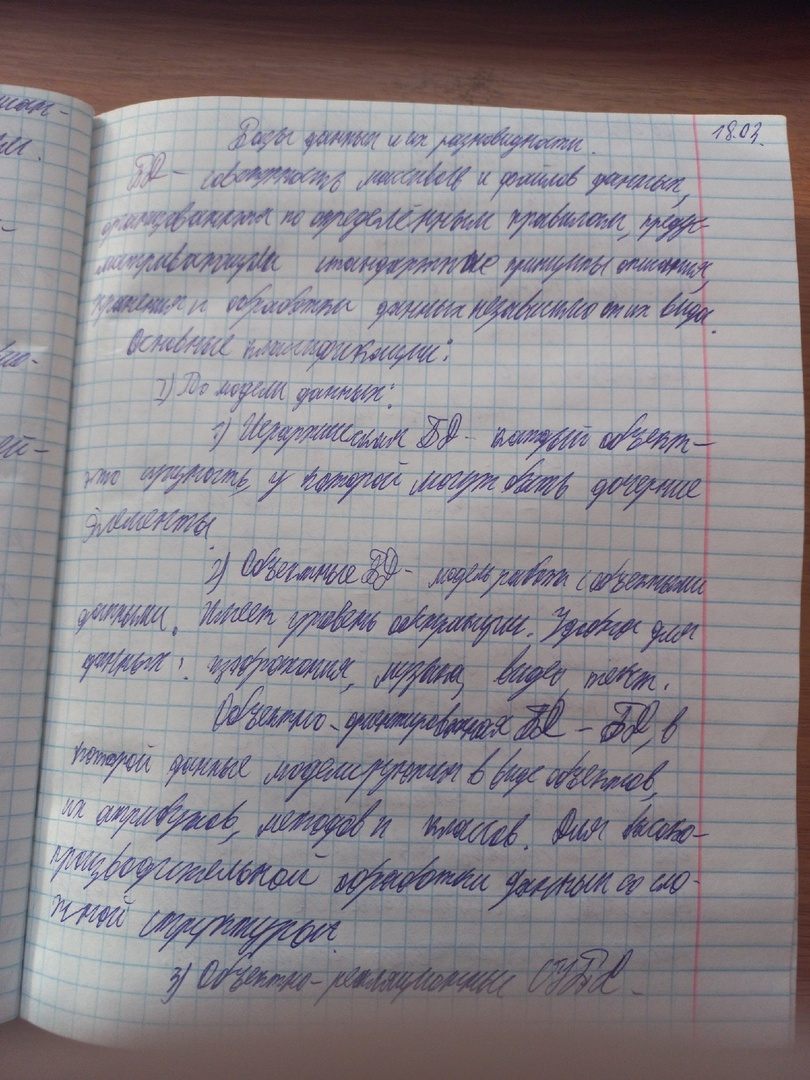 18.03.
Базы данных и их разновидности.
БД - совокупность массивов и файлов данных,
организованная по определённым правилам, предус-
матривающим стандартные принципы описания,
хранения и обработки данных независимо от их вида.
Основные классификации:
1) По модели данных:
1) Иерархическая БД - каждый объект -
это сущность, у которой могут быть дочерние
элементы.
2) Объектные БД - модель работы с объектными
данными. Имеет уровень абстракции. Удобна для
данных: изображения, музыка, видео, текст.
Объектно-ориентированная БД - БД, в
которой данные моделируются в виде объектов,
их атрибутов, методов и классов. Для высоко-
производительной обработки данных со сло-
жной структурой.
3) Объектно-реляционные СУБД -